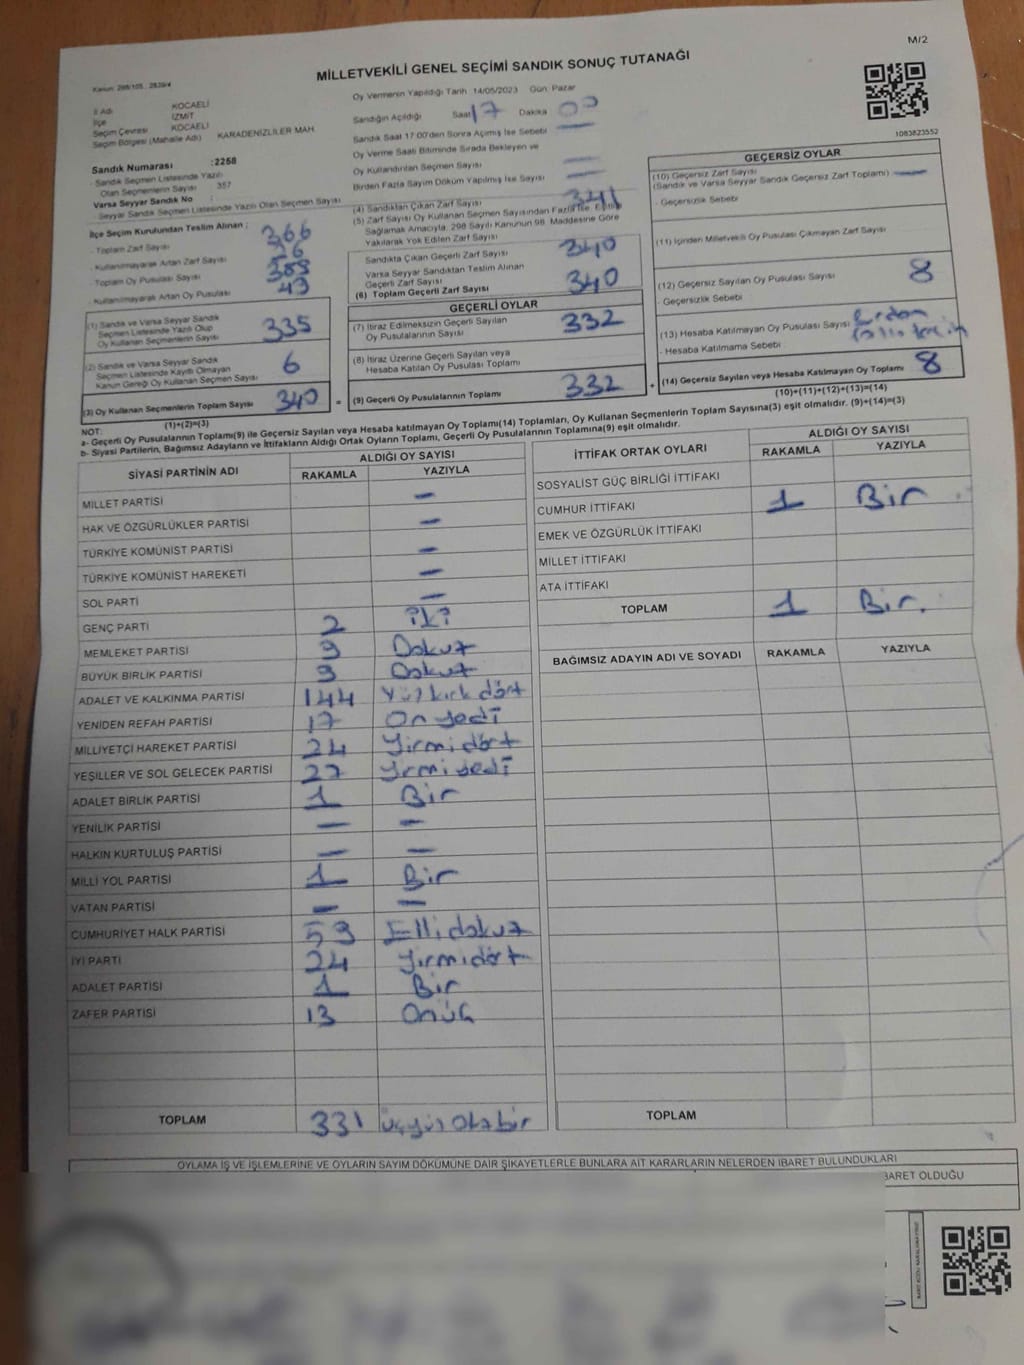 M/2
Kanun: 298/105 , 2839/4
MİLLETVEKİLİ GENEL SEÇİMİ SANDIK SONUÇ TUTANAĞI
İl Adı KOCAELİ
İlçe İZMİT
Seçim Çevresi KOCAELİ
Seçim Bölgesi (Mahalle Adı) KARADENİZLİLER MAH.
Sandık Numarası :2258
Sandık Seçmen Listesinde Yazılı
Olan Seçmenlerin Sayısı 357
Varsa Seyyar Sandık No :
Seyyar Sandık Seçmen Listesinde Yazılı Olan Seçmen Sayısı
İlçe Seçim Kurulundan Teslim Alınan :
- Toplam Zarf Sayısı 366
- Kullanılmayarak Artan Zarf Sayısı
- Toplam Oy Pusulası Sayısı
- Kullanılmayarak Artan Oy Pusulası 43
(1) Sandık ve Varsa Seyyar Sandık
Seçmen Listesinde Yazılı Olup
Oy Kullanan Seçmenlerin Sayısı 335
(2) Sandık ve Varsa Seyyar Sandık
Seçmen Listesinde Kayıtlı Olmayan
Kanun Gereği Oy Kullanan Seçmen Sayısı 6
(3) Oy Kullanan Seçmenlerin Toplam Sayısı 340 =
(1)+(2)=(3)
Oy Vermenin Yapıldığı Tarih 14/05/2023 Gün Pazar
Sandığın Açıldığı Saat 17 Dakika 00
Sandık Saat 17:00'den Sonra Açılmış İse Sebebi —
Oy Verme Saati Bitiminde Sırada Bekleyen ve
Oy Kullandırılan Seçmen Sayısı —
Birden Fazla Sayım Döküm Yapılmış İse Sayısı —
(4) Sandıktan Çıkan Zarf Sayısı 341
(5) Zarf Sayısı Oy Kullanan Seçmen Sayısından Fazla İse, Eşitliği
Sağlamak Amacıyla, 298 Sayılı Kanunun 98. Maddesine Göre
Yakılarak Yok Edilen Zarf Sayısı
Sandıkta Çıkan Geçerli Zarf Sayısı 340
Varsa Seyyar Sandıktan Teslim Alınan
Geçerli Zarf Sayısı
(6) Toplam Geçerli Zarf Sayısı 340
GEÇERLİ OYLAR
(7) İtiraz Edilmeksizin Geçerli Sayılan
Oy Pusulalarının Sayısı 332
(8) İtiraz Üzerine Geçerli Sayılan veya
Hesaba Katılan Oy Pusulası Toplamı
(9) Geçerli Oy Pusulalarının Toplamı 332 +
1083823552
GEÇERSİZ OYLAR
(10) Geçersiz Zarf Sayısı
(Sandık ve Varsa Seyyar Sandık Geçersiz Zarf Toplamı) —
- Geçersizlik Sebebi
(11) İçinden Milletvekili Oy Pusulası Çıkmayan Zarf Sayısı
(12) Geçersiz Sayılan Oy Pusulası Sayısı 8
- Geçersizlik Sebebi
(13) Hesaba Katılmayan Oy Pusulası Sayısı
- Hesaba Katılmama Sebebi
(14) Geçersiz Sayılan veya Hesaba Katılmayan Oy Toplamı 8
(10)+(11)+(12)+(13)=(14)
NOT:
a- Geçerli Oy Pusulalarının Toplamı(9) ile Geçersiz Sayılan veya Hesaba katılmayan Oy Toplamı(14) Toplamları, Oy Kullanan Seçmenlerin Toplam Sayısına(3) eşit olmalıdır. (9)+(14)=(3)
b- Siyasi Partilerin, Bağımsız Adayların ve İttifakların Aldığı Ortak Oyların Toplamı, Geçerli Oy Pusulalarının Toplamına(9) eşit olmalıdır.
SİYASİ PARTİNİN ADI
ALDIĞI OY SAYISI
RAKAMLA YAZIYLA
MİLLET PARTİSİ —
HAK VE ÖZGÜRLÜKLER PARTİSİ —
TÜRKİYE KOMÜNİST PARTİSİ —
TÜRKİYE KOMÜNİST HAREKETİ —
SOL PARTİ —
GENÇ PARTİ 2 İki
MEMLEKET PARTİSİ 9 Dokuz
BÜYÜK BİRLİK PARTİSİ 9 Dokuz
ADALET VE KALKINMA PARTİSİ 144 Yüz kırk dört
YENİDEN REFAH PARTİSİ 17 On yedi
MİLLİYETÇİ HAREKET PARTİSİ 24 Yirmi dört
YEŞİLLER VE SOL GELECEK PARTİSİ 27 Yirmi yedi
ADALET BİRLİK PARTİSİ 1 Bir
YENİLİK PARTİSİ — —
HALKIN KURTULUŞ PARTİSİ — —
MİLLİ YOL PARTİSİ 1 Bir
VATAN PARTİSİ — —
CUMHURİYET HALK PARTİSİ 59 Elli dokuz
İYİ PARTİ 24 Yirmi dört
ADALET PARTİSİ 1 Bir
ZAFER PARTİSİ 13 Onüç
TOPLAM 331 üçyüz Otuz bir
İTTİFAK ORTAK OYLARI
ALDIĞI OY SAYISI
RAKAMLA YAZIYLA
SOSYALİST GÜÇ BİRLİĞİ İTTİFAKI
CUMHUR İTTİFAKI 1 Bir
EMEK VE ÖZGÜRLÜK İTTİFAKI
MİLLET İTTİFAKI
ATA İTTİFAKI
TOPLAM 1 Bir.
BAĞIMSIZ ADAYIN ADI VE SOYADI RAKAMLA YAZIYLA
TOPLAM
OYLAMA İŞ VE İŞLEMLERİNE VE OYLARIN SAYIM DÖKÜMÜNE DAİR ŞİKAYETLERLE BUNLARA AİT KARARLARIN NELERDEN İBARET BULUNDUKLARI
BARET OLDUĞU